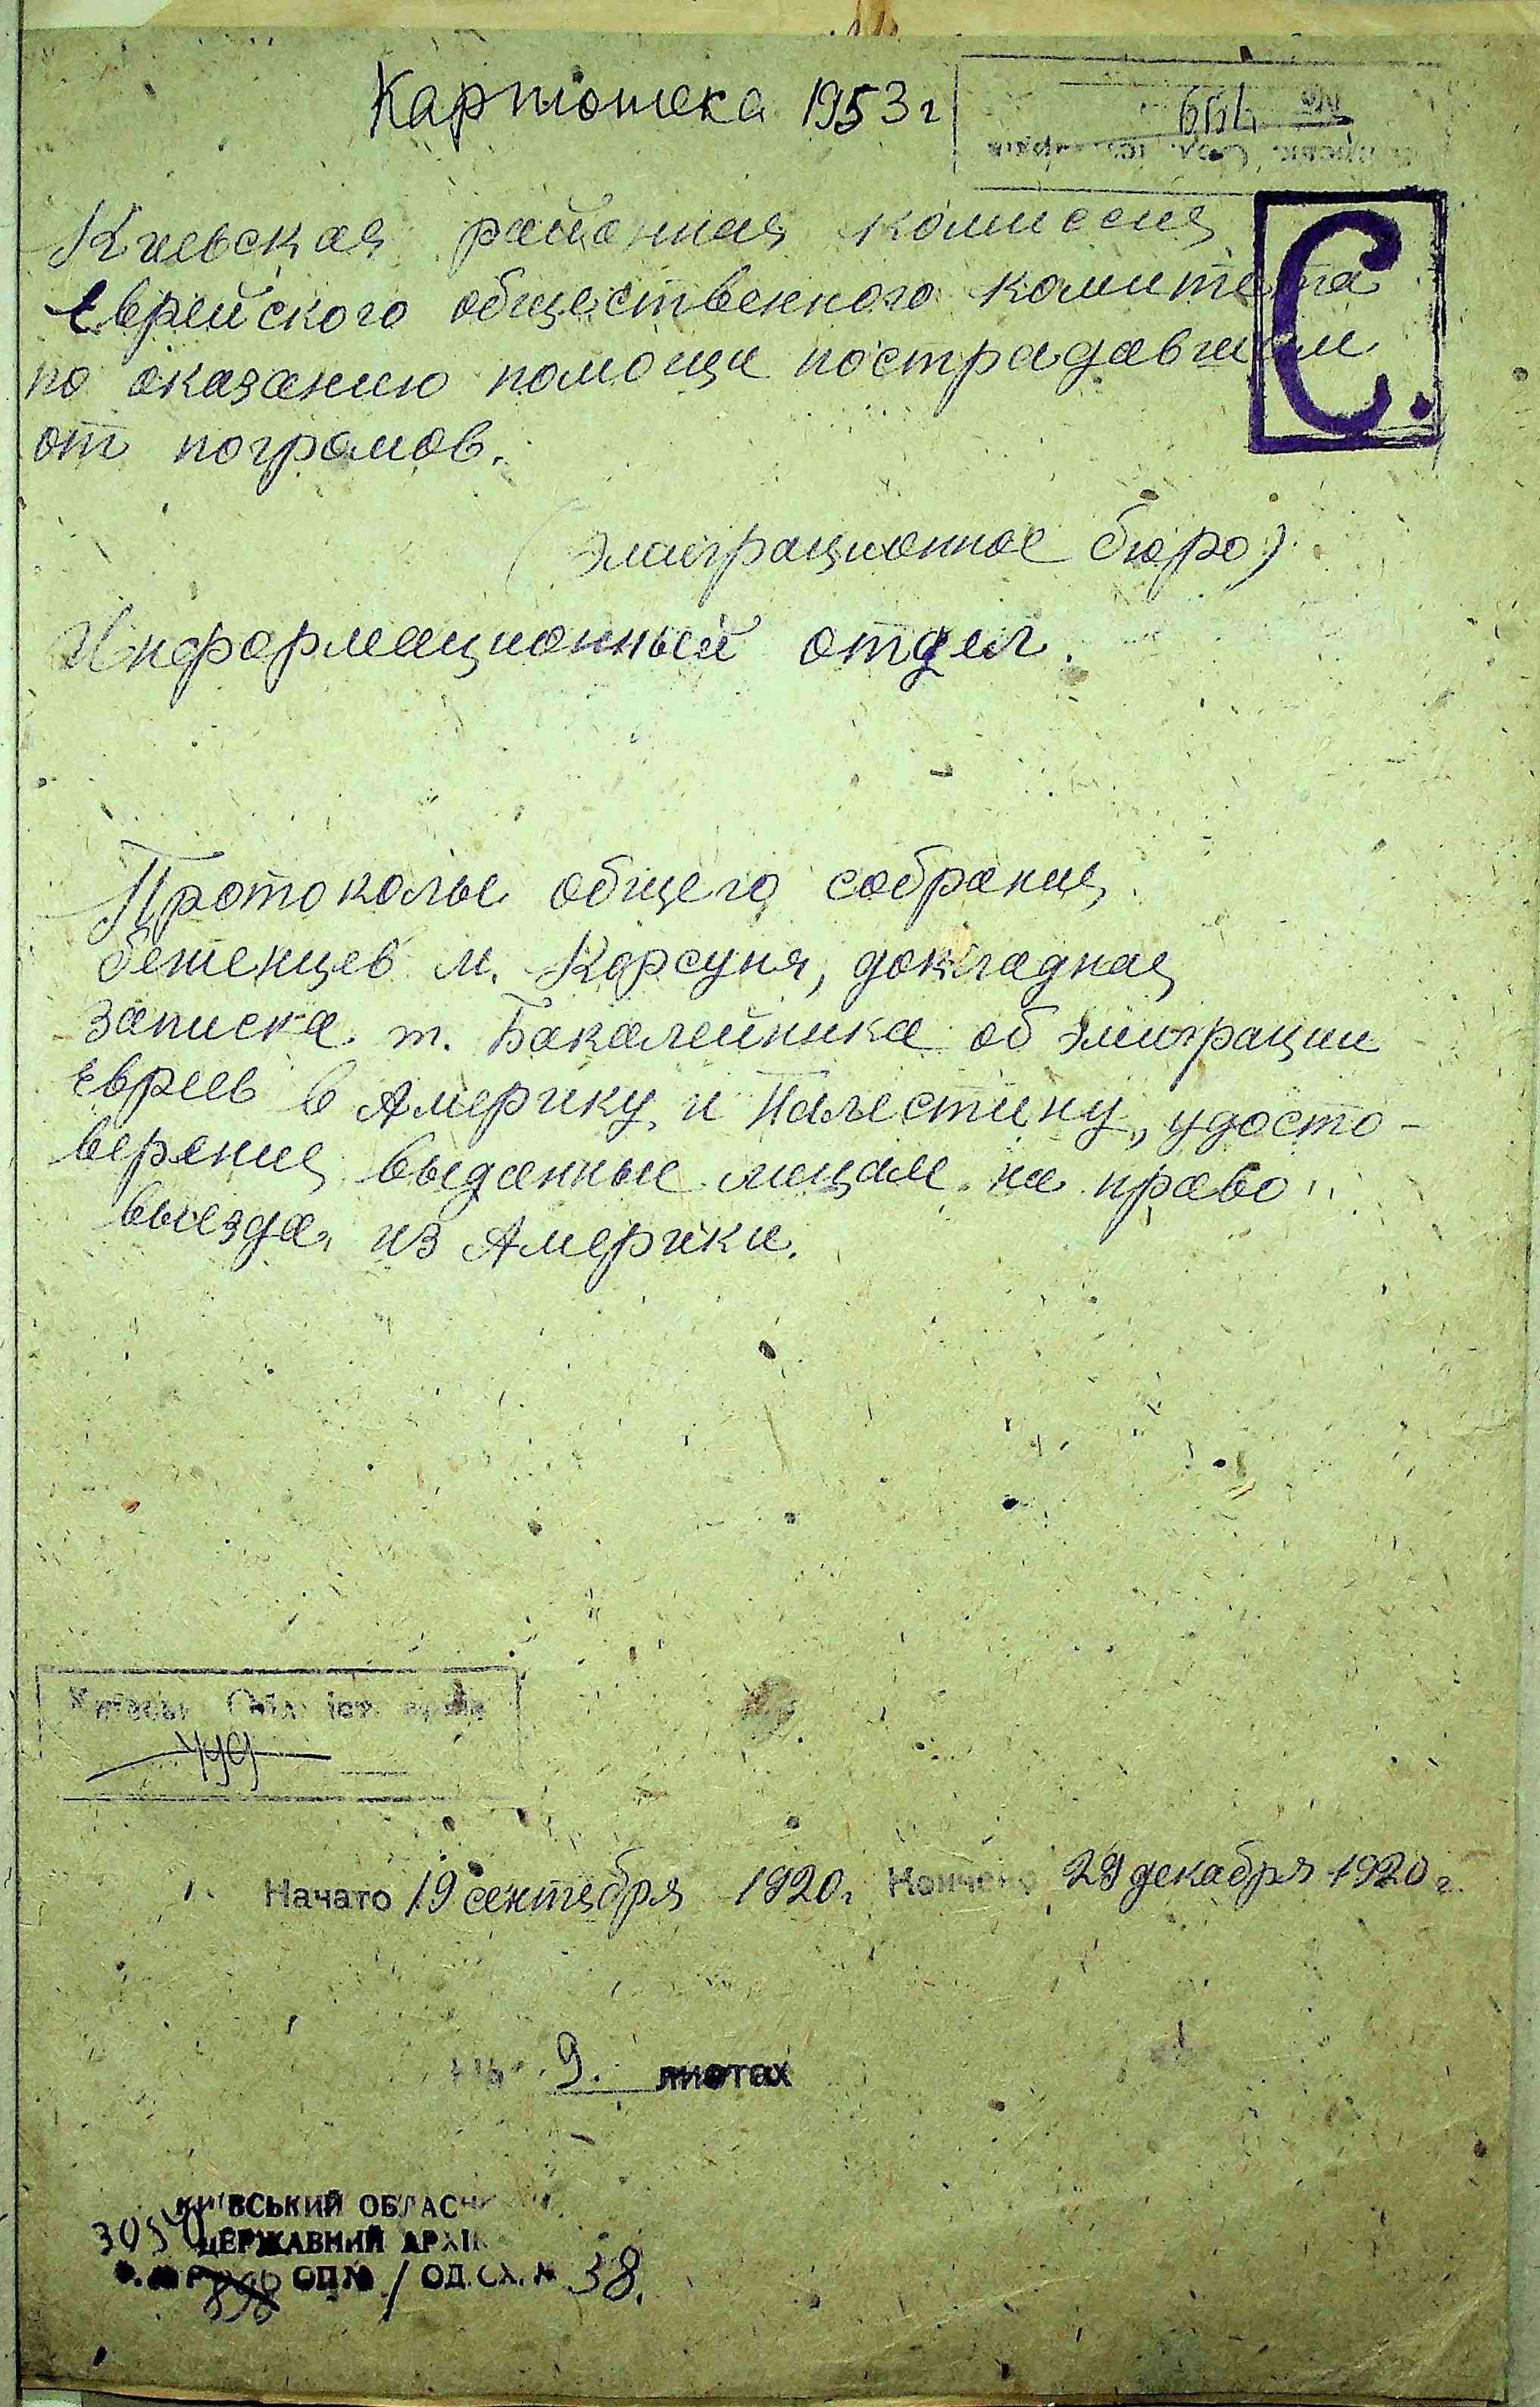 Картотека 1953 г
С.
Киевская районная комиссия
Еврейского общественного комитета
по оказанию помощи пострадавшим
от погромов.
(Эмиграционное бюро)
Информационный отдел.
Протоколы общего собрания
беженцев м. Корсуня, докладная
записка т. Бакалейника об эмиграции
Евреев в Америку и Палестину, удосто-
верения выданные лицам на право
выезда из Америки.
Начато 19 сентября 1920г. Кончено 28 декабря 1920 г.
9. листах
КИЇВСЬКИЙ ОБЛАСН
ДЕРЖАВНИЙ АРХІВ
ОП № 1 ОД. СХ. № 38.